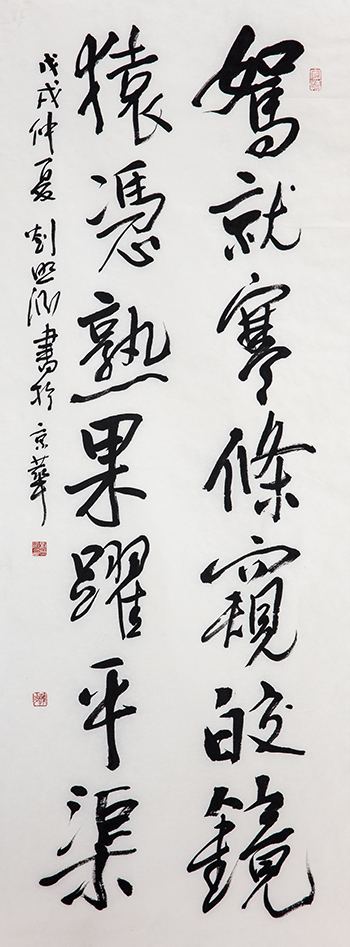 就寒條窺皎鏡
猿憑熟果躍平渠
戊戌仲夏劉照書於京華